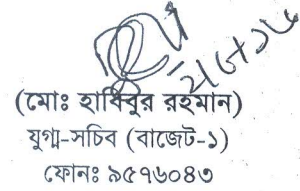 (মোঃ হাবিবুর রহমান)
যুগ্ম-সচিব (বাজেট-১)
ফোনঃ ৯৫৭৬০৪৩